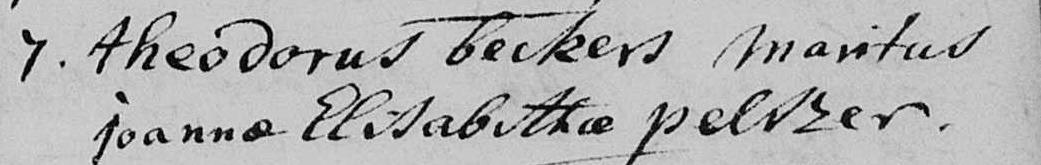 7. theodorus beckers maritus
joannæ Elisabethæ peltzer.